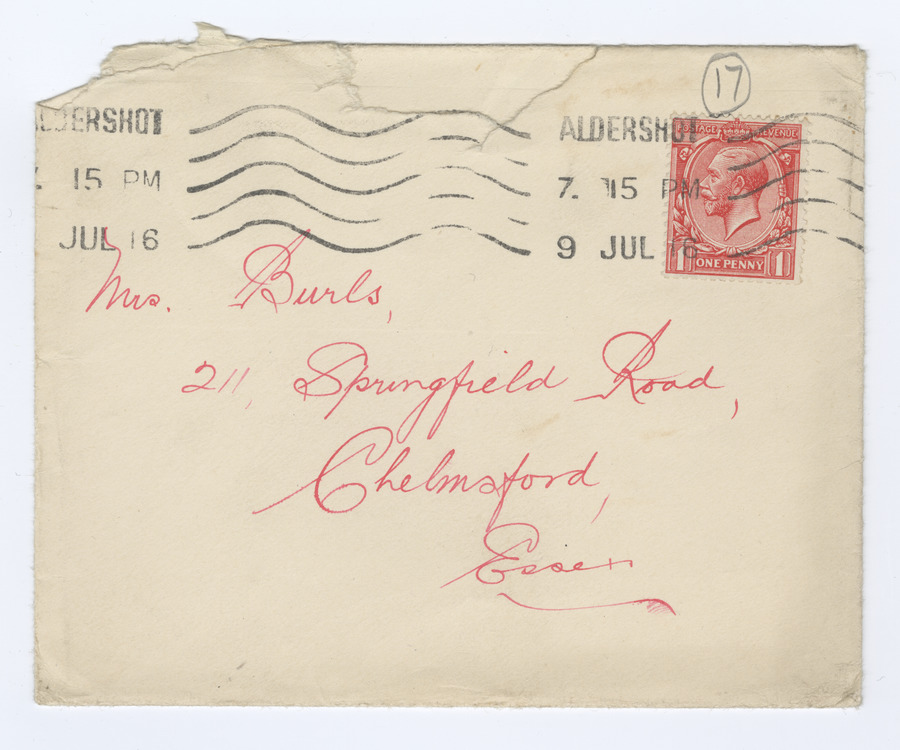 17
ALDERSHOT ALDERSHOT
15 PM 7. 15 PM
JUL 16 9 JUL 16
POSTAGE REVENUE
1 ONE PENNY 1
Mrs. Burls,
211, Springfield Road,
Chelmsford,
Essex